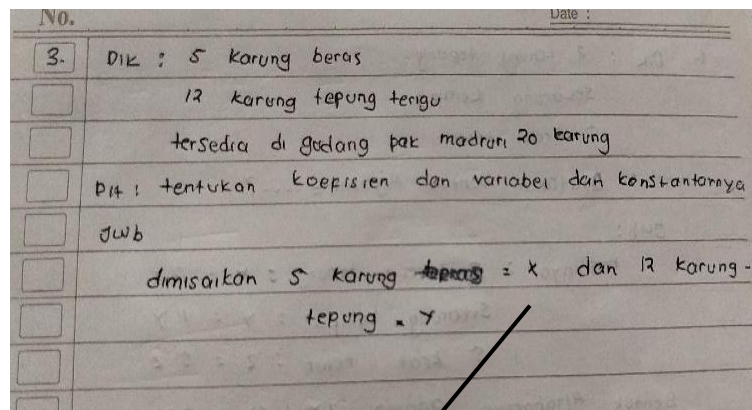 No. Date :
3. Dik : 5 karung beras
12 karung tepung terigu
tersedia di gudang pak madruri 20 karung
Dit : tentukan koefisien dan variabel dan konstantarnya
Jwb
dimisalkan : 5 karung beras = x dan 12 karung -
tepung = y